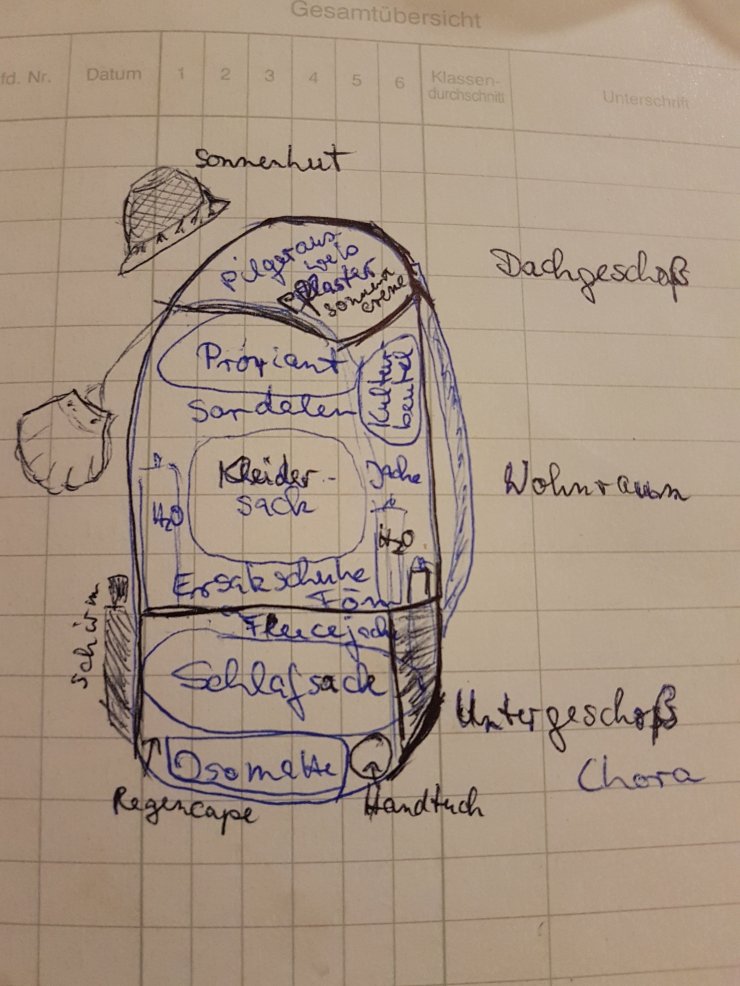 Gesamtübersicht
fd. Nr.
Datum
1
2
3
4
5
6
Klassen-
durchschnitt
Unterschrift
Sonnenhut
pilgeraus
weis
pflaster
sonnen
creme
Dachgeschoß
Proviant
Kultur
beutel
Sandalen
Kleider-
sack
Jacke
Wohnraum
H2O
H2O
Ersatzschuhe
Fön
Schirm
Fleecejacke
Schlafsack
Untergeschoß
Isomatte
Chora
Regencape
Handtuch